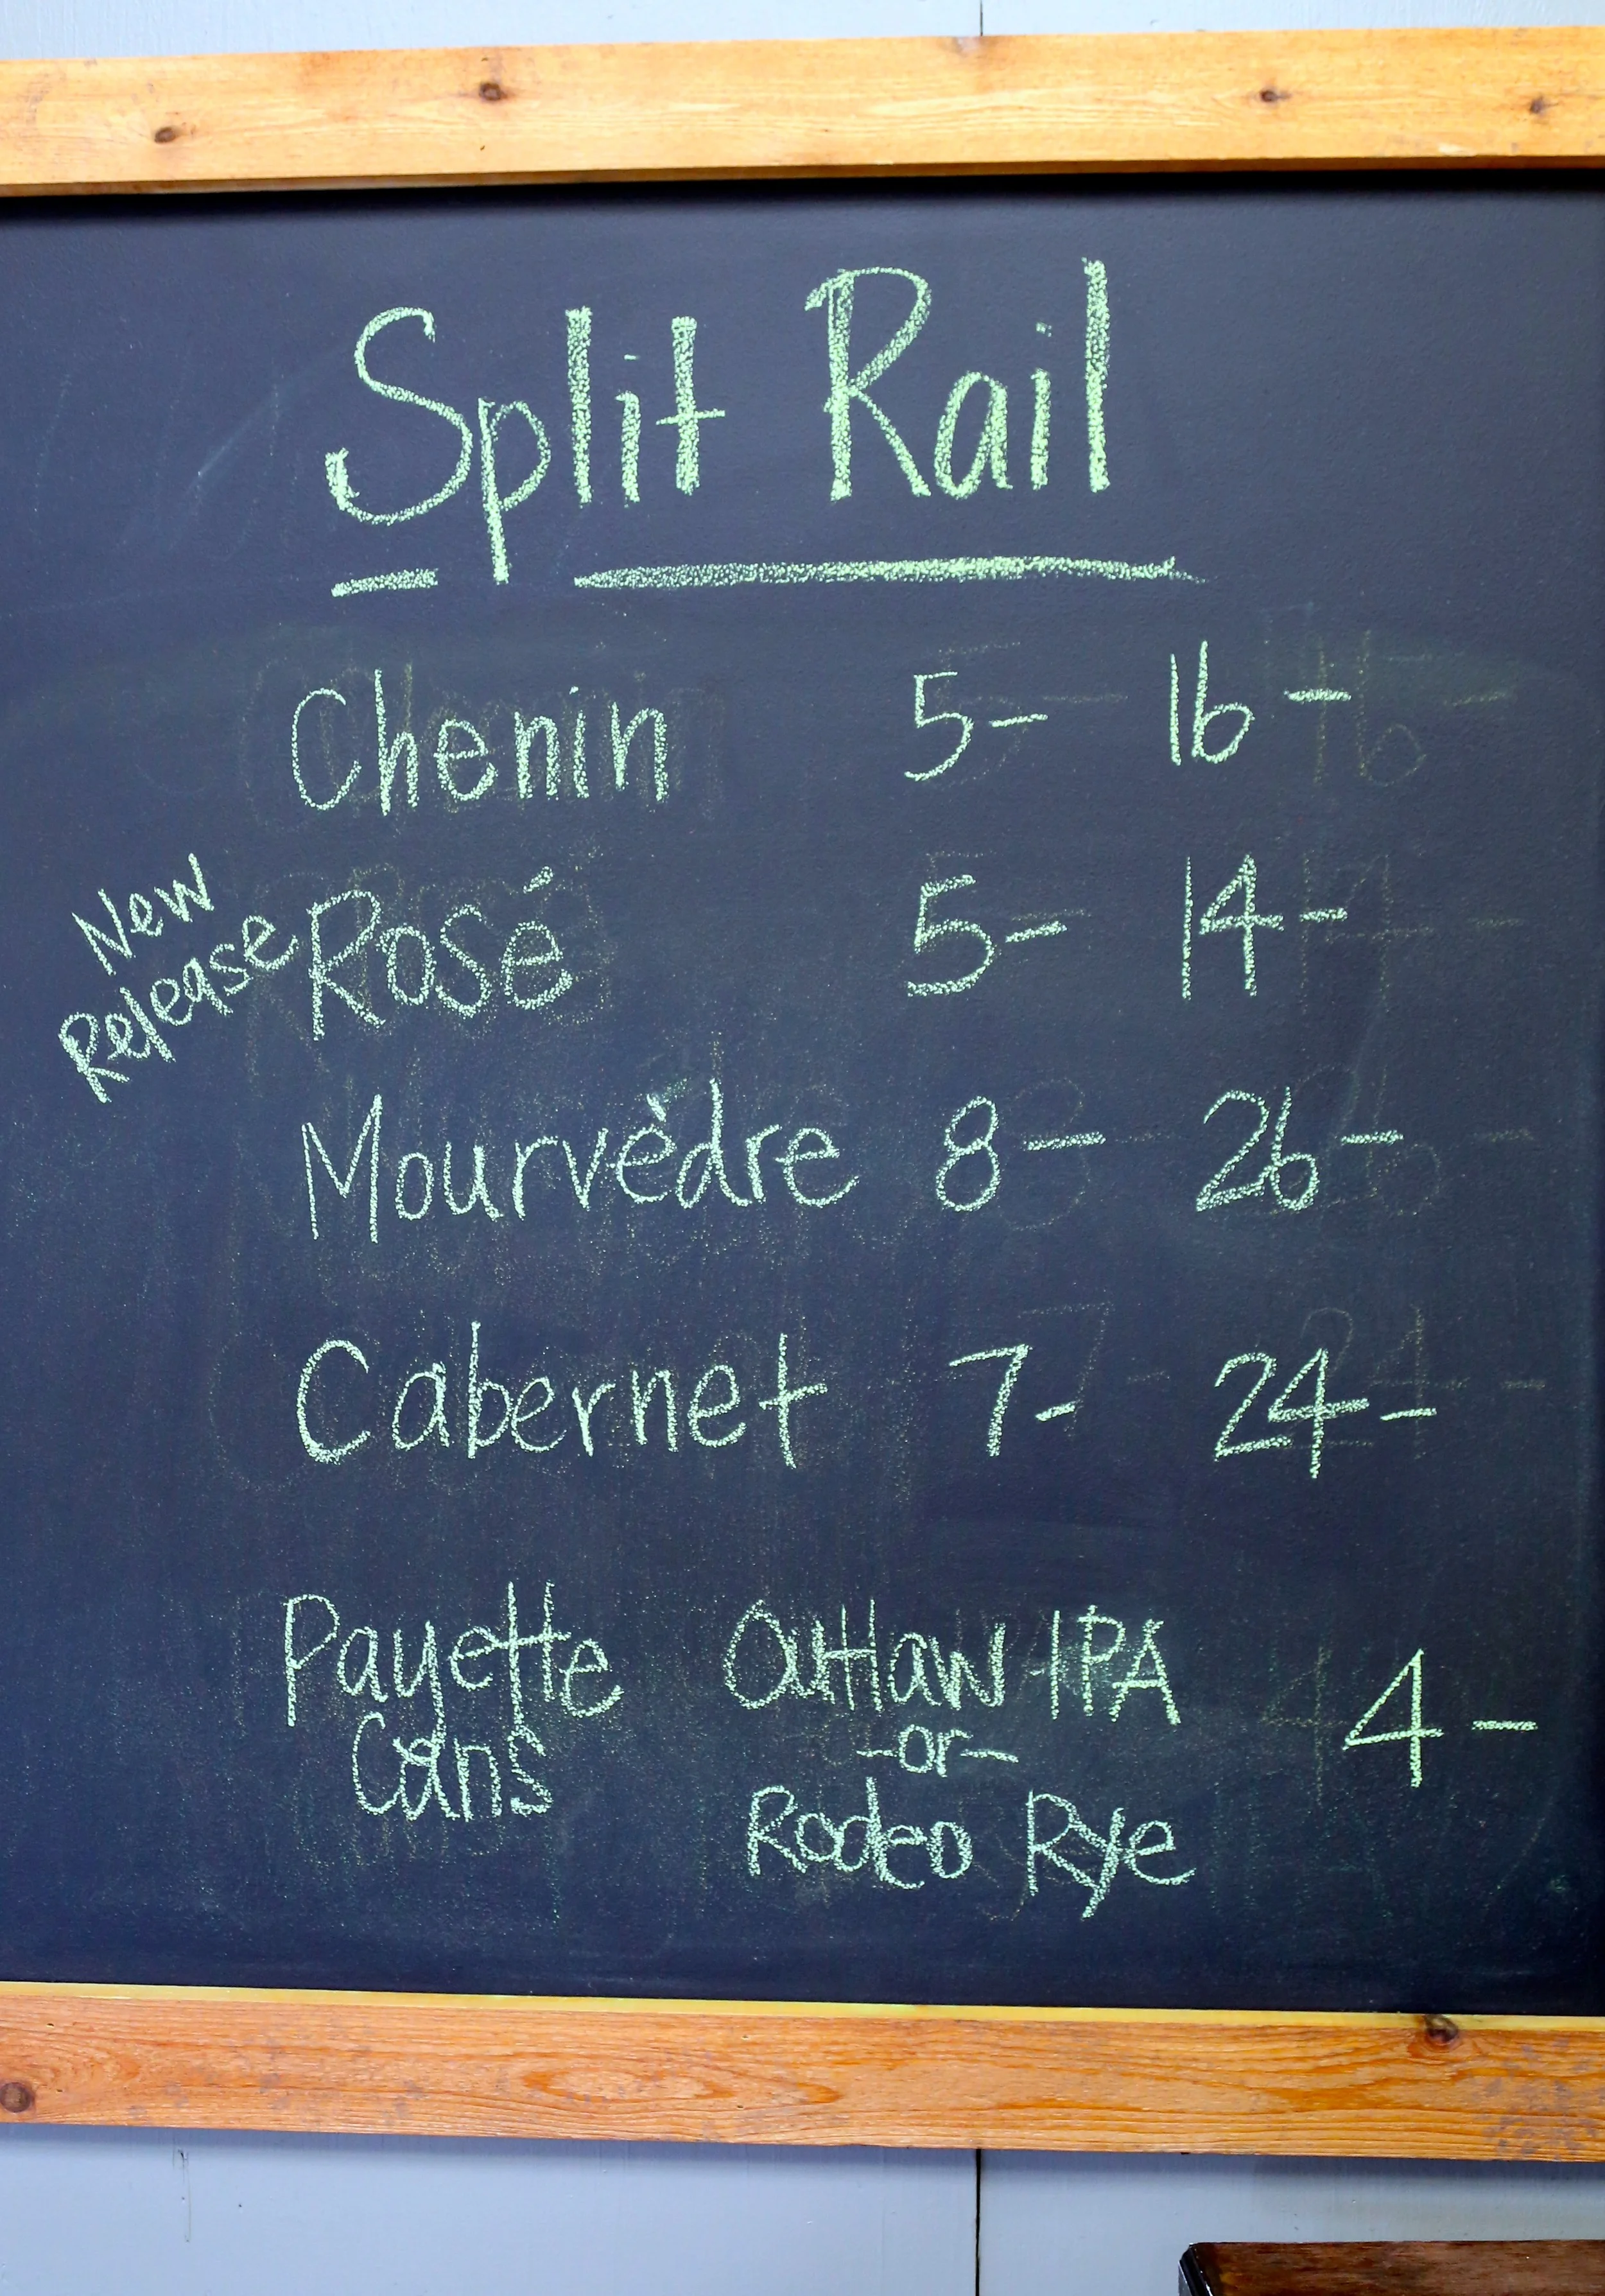 Split Rail
Chenin 5- 16-
New
Release
Rosé 5- 14-
Mourvèdre 8- 26-
Cabernet 7- 24-
Payette Outlaw IPA 4-
Cans -or-
Rodeo Rye